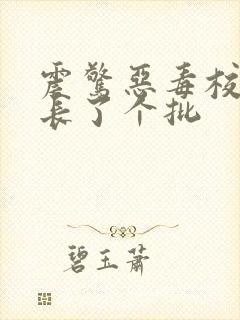 震惊恶毒校
长了个批
碧玉萧